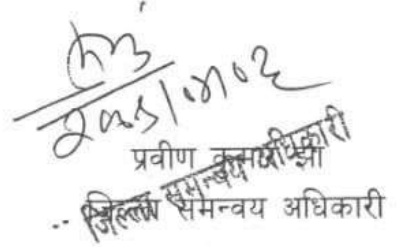 प्रवीण कुमार झा
जिल्ला समन्वय अधिकारी
जिल्ला समन्वय अधिकारी